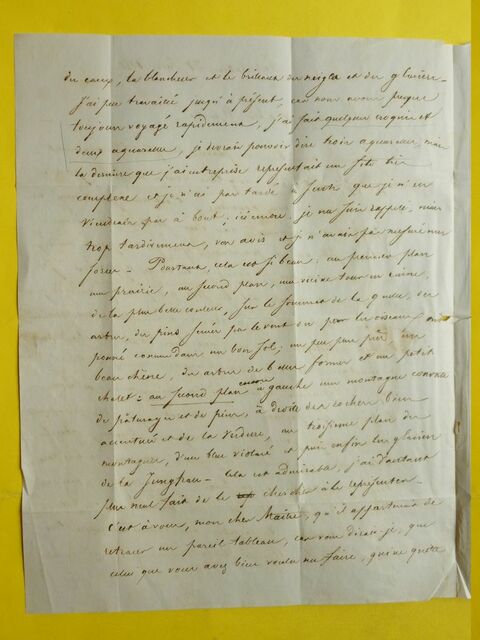 des eaux, la blancheur et le brillant des neiges et des glaciers.
J'ai peu travaillé jusqu'à présent, car nous avons presque
toujours voyagé rapidement, j'ai fait quelques croquis et
deux aquarelles, je devrais pouvoir dire trois aquarelles, mais
la dernière que j'ai entreprise représentait un site très
complexe et je n'ai pas tardé à sentir que je n'en
viendrais pas à bout, je me suis rappelé, mais
trop tardivement, vos avis et je n'avais pas mesuré mes
forces. Pourtant, cela est si beau: au premier plan
une prairie, au second plan, une ruine
de la plus belle couleur, sur le sommet de laquelle, des
arbres, des pins semés par le vent ou par les oiseaux ont
poussé comme dans un bon sol, un peu plus près, un
beau chêne, des arbres de belles formes et un petit
chalet - au second plan encore à gauche une montagne couverte
de pâturages et de pins, à droite des rochers bien
accentués et de la verdure, au troisième plan des
montagnes, d'un bleu violacé et puis enfin les glaciers
de la Jungfrau. Cela est admirable, j'ai d'autant
plus mal fait de le chercher à le représenter.
C'est à vous, mon cher Maître, qu'il appartient de
retracer un pareil tableau, car vous dirais-je, que
celui que vous avez bien voulu me faire, qui ne quitte